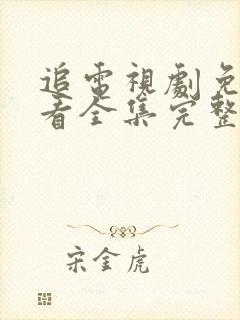 追電視劇免
看全集完整
宋金虎